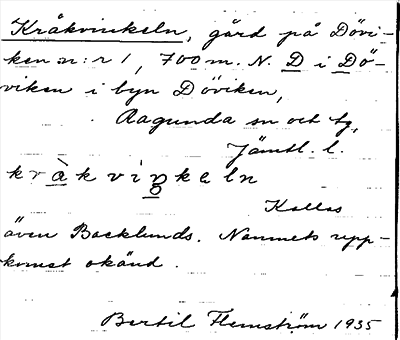 Kråkvinkeln, gård på Dövi-
ken n:r 1, 700 m. N. D i Dö-
viken i byn Döviken,
Ragunda sn och tg,
Jämtl. l.
kràkviŋkeln
Kallas
även Backlunds. Namnets upp-
komst okänd.
Bertil Flemström 1935